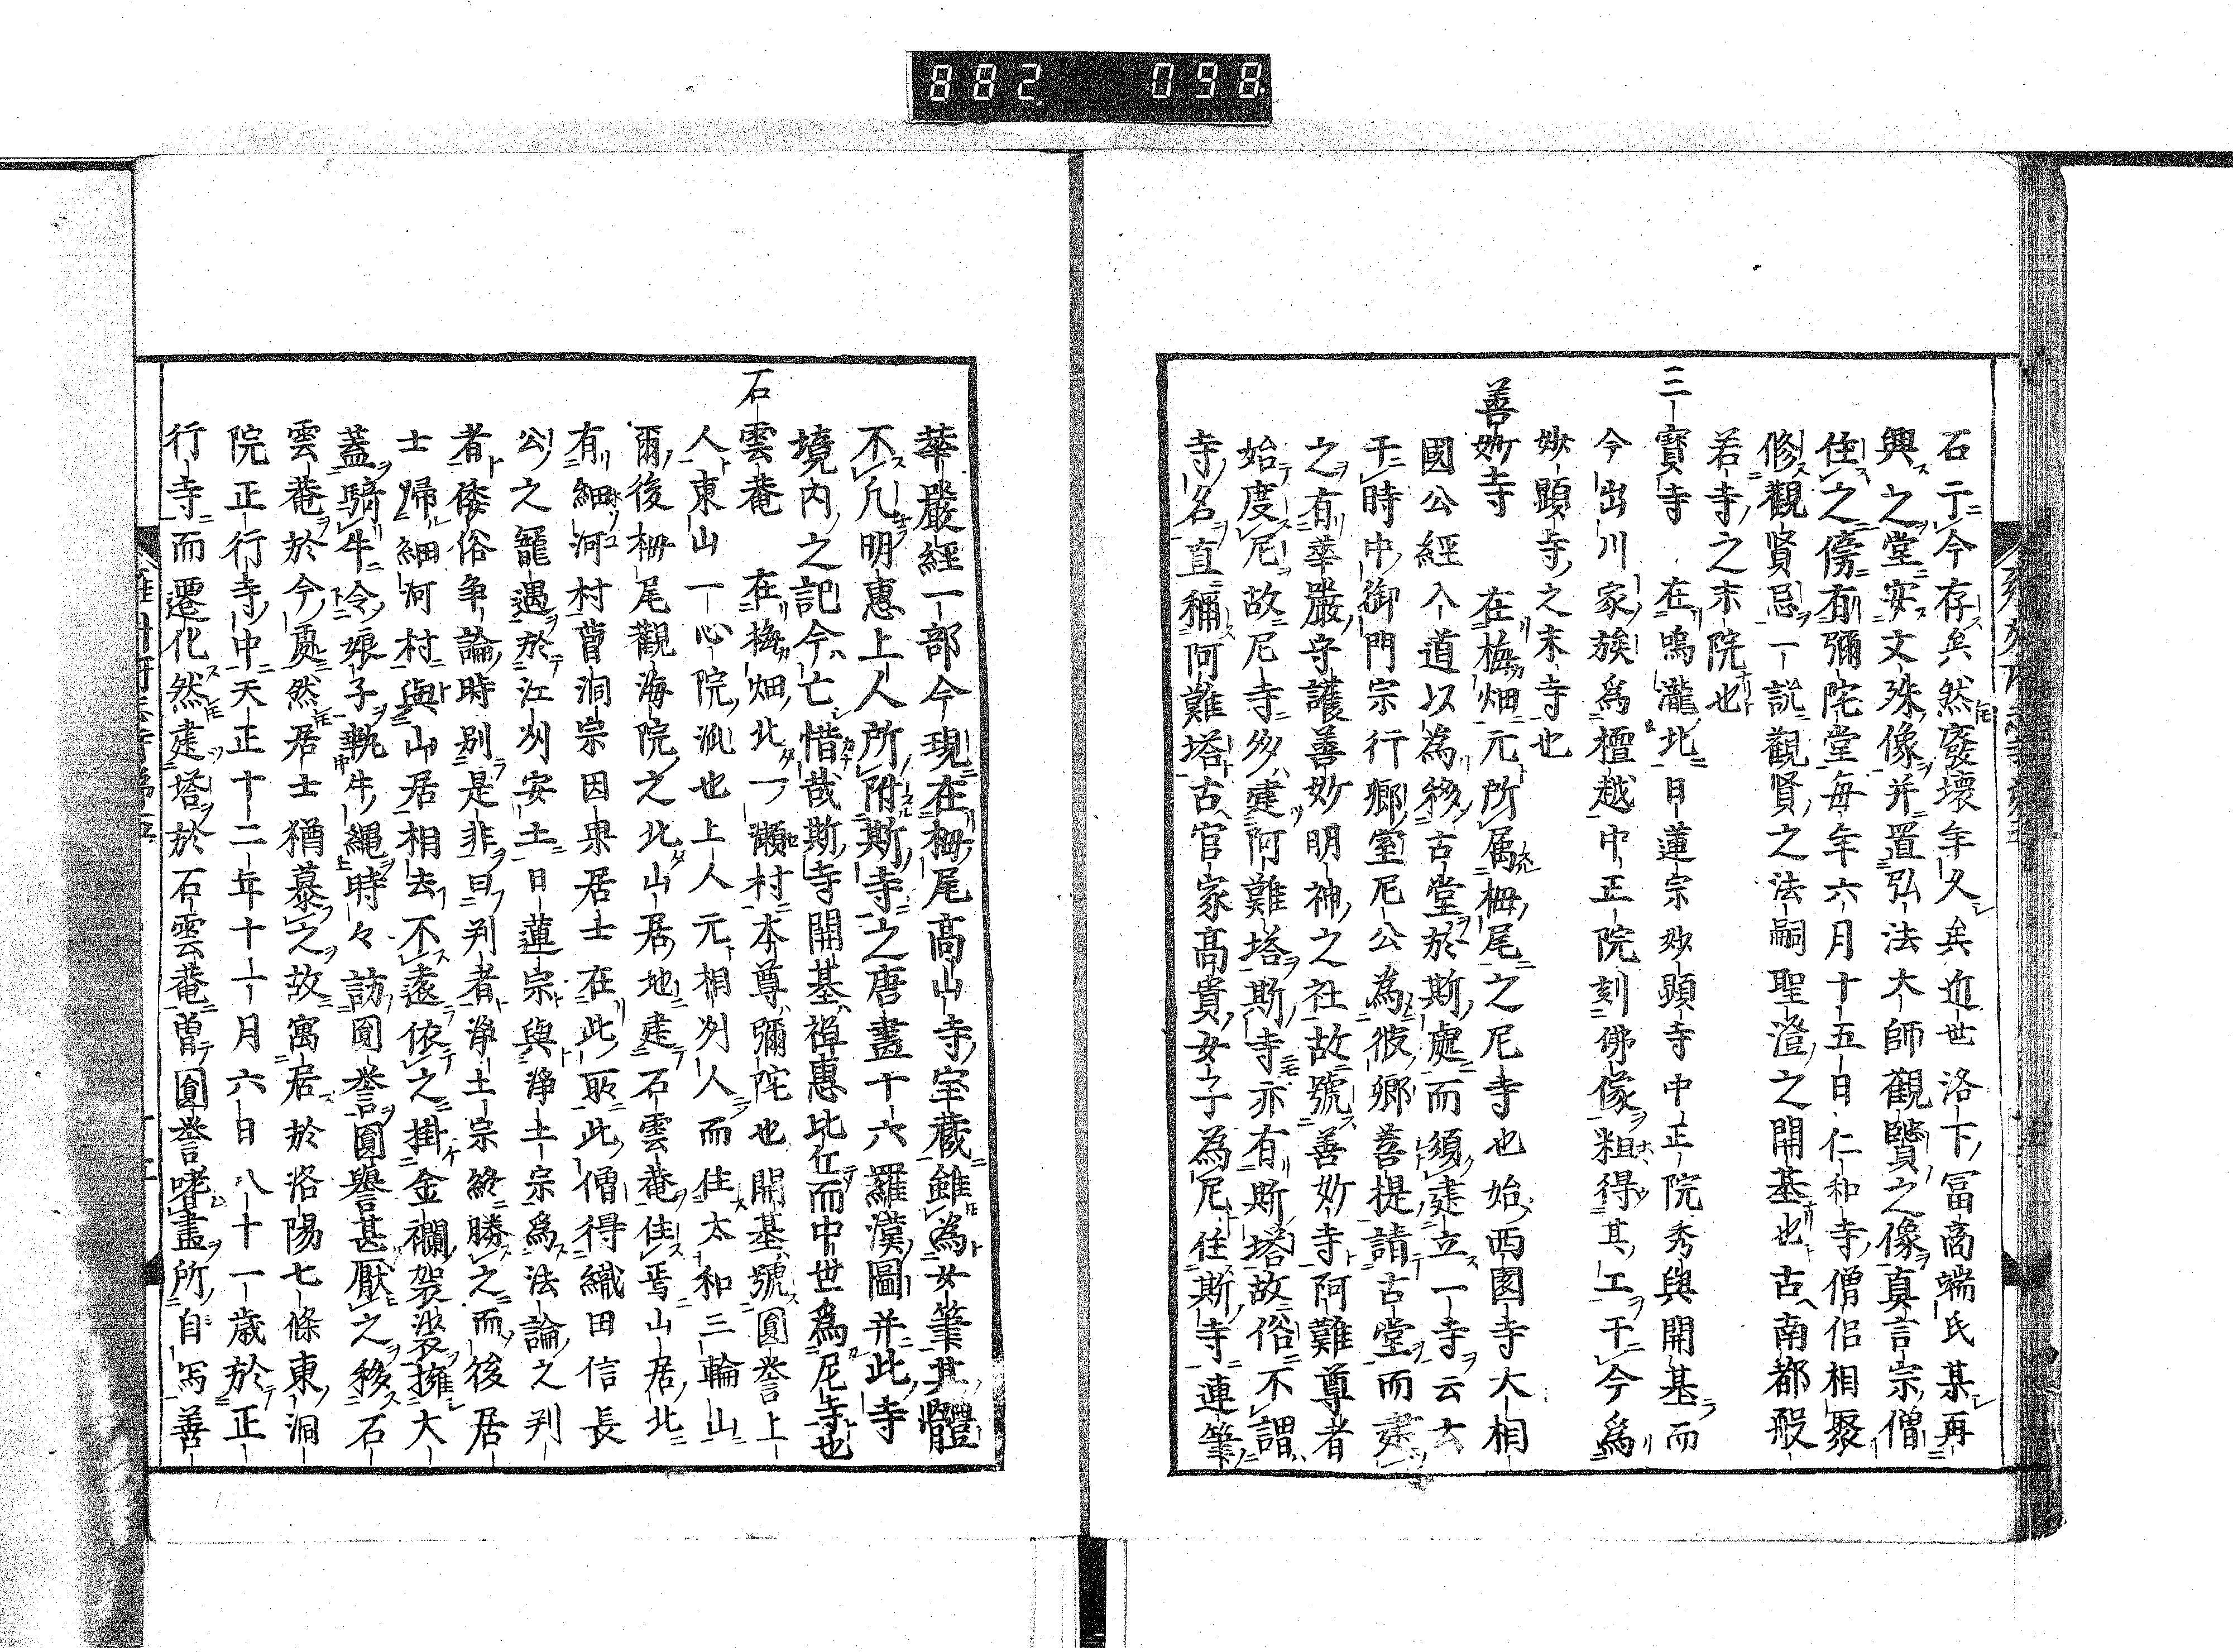 882 098
石于今存矣然廢壞年久矣近世洛下冨商端氏某再
興之堂安文殊像并置弘法大師觀賢之像真言宗僧
住之傍有彌陀堂毎年六月十五日仁和寺僧侶相聚
修觀賢忌一説觀賢之法嗣聖澄之開基也古南都般
若寺之末院也
三寳寺 在鳴瀧北日蓮宗妙顕寺中正院秀與開基而
今出川家族爲檀越中正院刻佛像粗得其工于今爲
妙顕寺之末寺也
善妙寺 在梅畑元所属栂尾之尼寺也始西園寺大相
國公經入道以為移古堂於斯處而須建立一寺云云
于時中御門宗行卿室尼公為彼卿菩提請古堂而建
之有華嚴守護善妙明神之社故號善妙寺阿難尊者
始度尼故尼寺多建阿難塔斯寺亦有斯塔故俗不謂
寺名直稱阿難塔古官家高貴女子為尼住斯寺連筆
華嚴經一部今現在栂尾高山寺宝蔵雖為女筆其體
不凡明惠上人所附斯寺之唐畫十六羅漢圖并此寺
境内之記今亡惜哉斯寺開基禅惠比丘而中世爲尼寺也
石雲菴 在梅畑北一ノ瀬村本尊彌陀也開基號圓誉上
人東山一心院派也上人元相州人而住太和三輪山
爾後栂尾觀海院之北山居地建石雲菴住焉山居北
有細河村曹洞宗因果居士在此取此僧得織田信長
公之寵遇於江刕安土日蓮宗與淨土宗爲法論之判
者倭俗争論時別是非曰判者淨土宗終勝之而後居
士歸細河村與山居相去不遠依之掛金襴袈裟擁大
蓋騎牛令娘子執牛縄時々訪圓誉圓譽甚厭之移石
雲菴於今處然居士猶慕之故寓居於洛陽七條東洞
院正行寺中天正十二年十一月六日八十一歳於正
行寺而遷化然建塔於石雲菴曽圓誉嗜畫所自写善